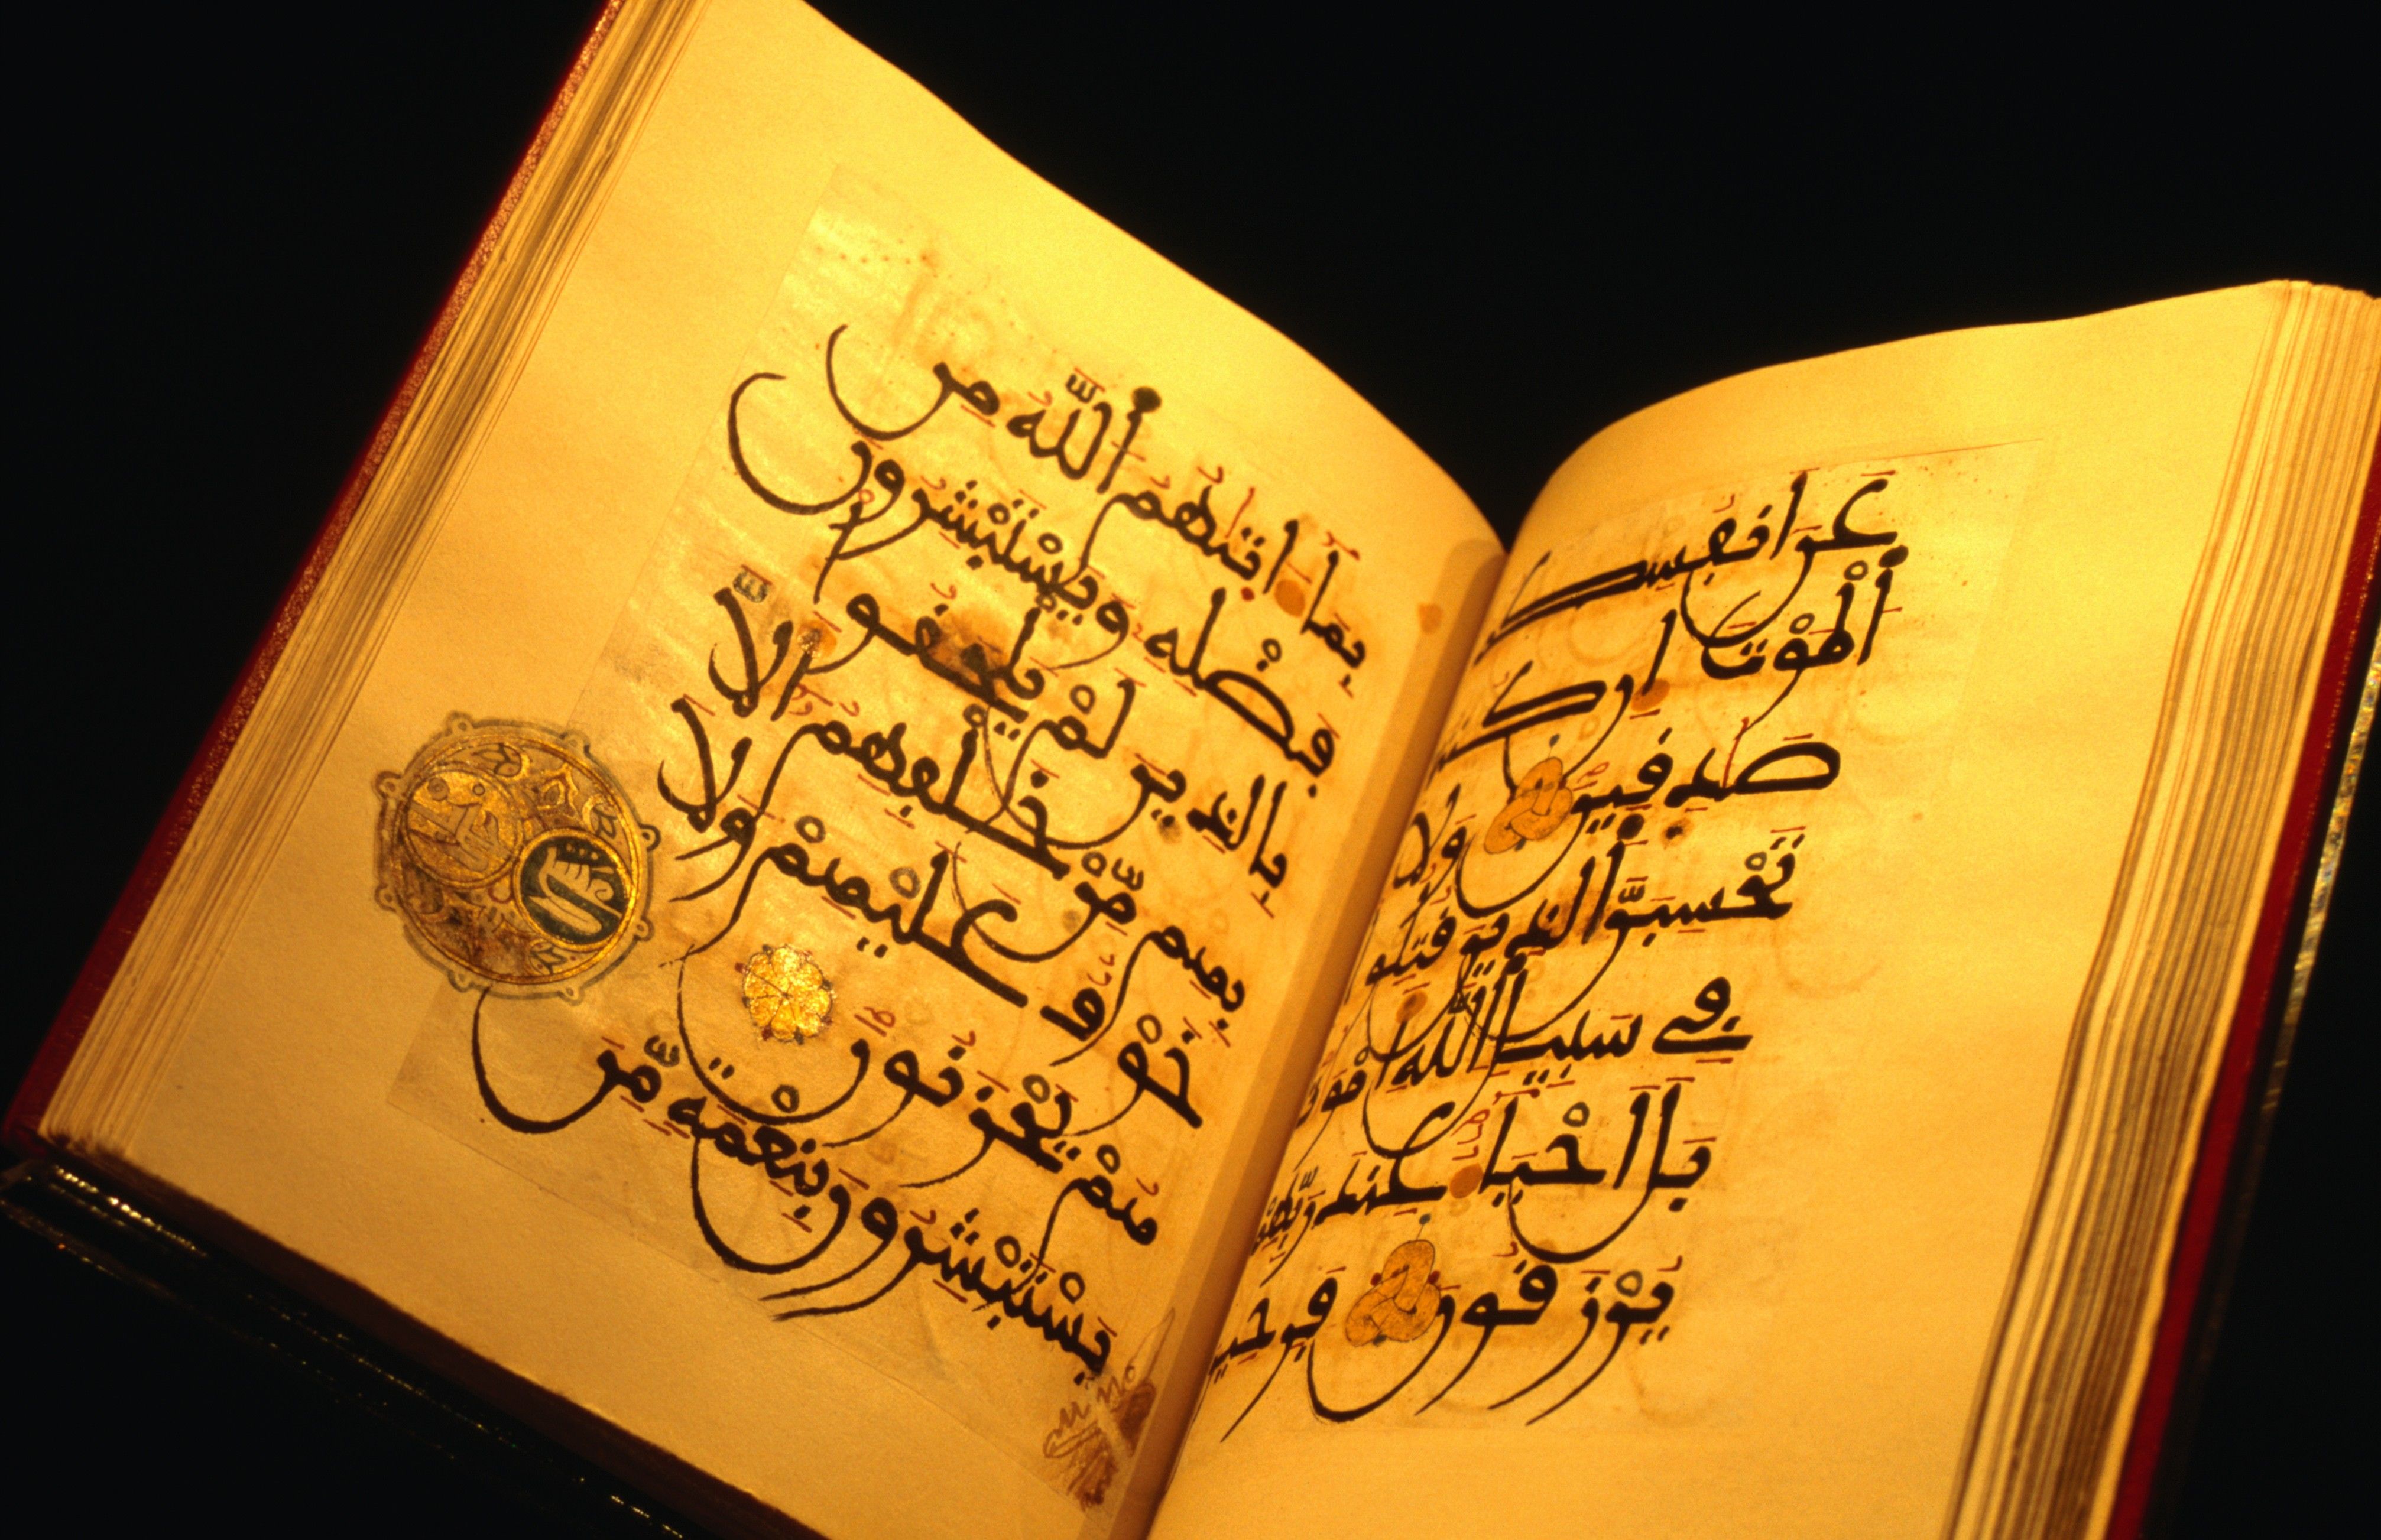 عن انفسكم
الموت ان كنتم
صدقين ولا
تحسبن الذين قتلوا
في سبيل الله اموتا
بل احيا عند ربهم
يرزقون فرحين
بما اتىهم الله من
فضله ويستبشرون
بالذين لم يلحقوا
بهم من خلفهم الا
خوف عليهم ولا
هم يحزنون
يستبشرون بنعمة من